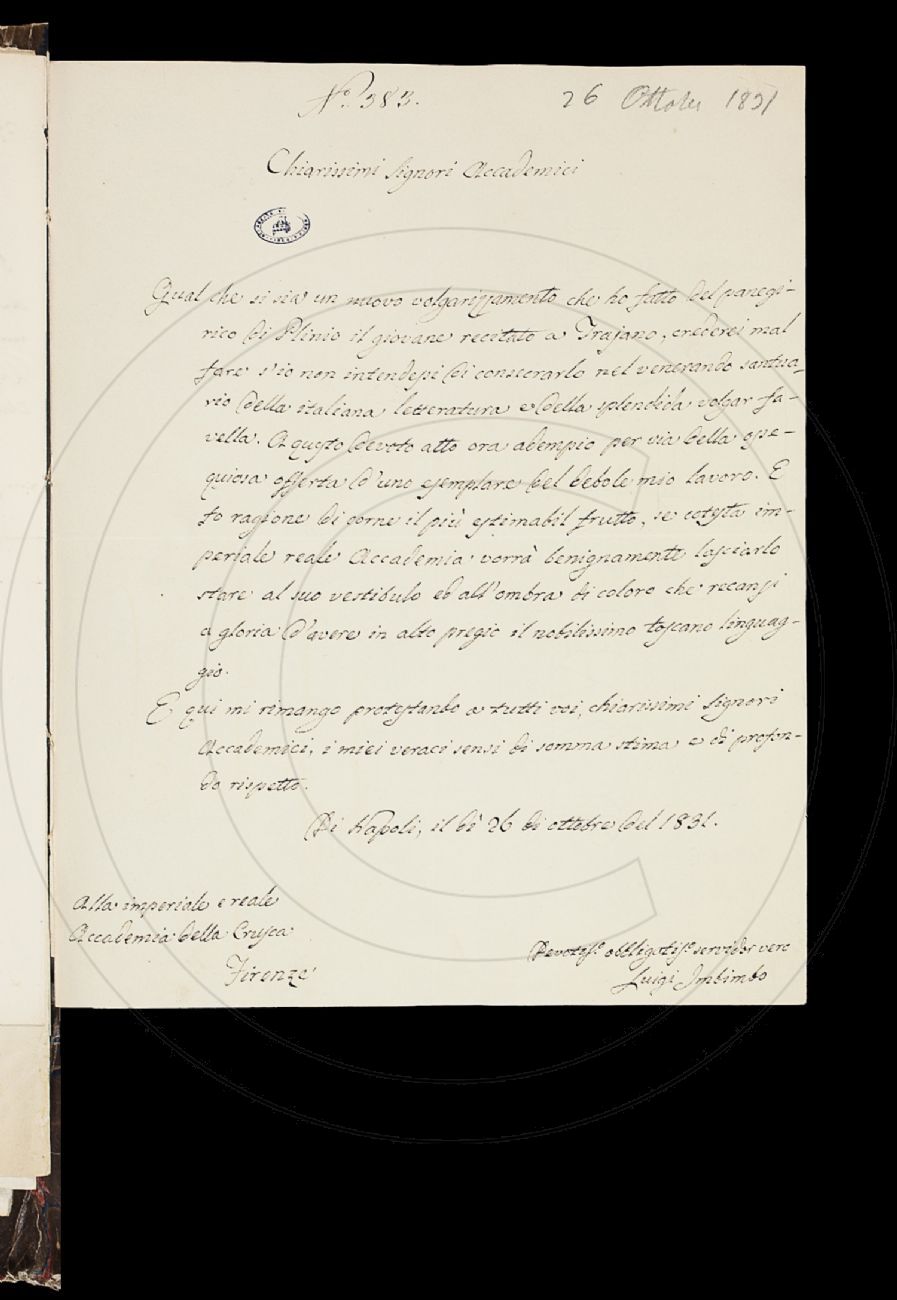 N.° 383.
26 Ottobre 1831
Chiarissimi Signori Accademici
Qual che si sia un nuovo volgarizzamento che ho fatto del panegi-
rico di Plinio il giovane recitato a Trajano, crederei mal
fare s'io non intendessi di consecrarlo nel venerando santua-
rio della italiana letteratura e della splendida volgar fa-
vella. A questo devoto atto ora adempio per via della osse-
quiosa offerta d'uno esemplare del debole mio lavoro. E
fo ragione di corne il più estimabil frutto, se cotesta im-
periale reale Accademia vorrà benignamente lasciarlo
stare al suo vestibulo ed all'ombra di coloro che recansi
a gloria d'avere in alto pregio il nobilissimo toscano linguag-
gio.
E qui mi rimango protestando a tutti voi, chiarissimi Signori
Accademici, i miei veraci sensi di somma stima e di profon-
do rispetto.
Di Napoli, il dì 26 di ottobre del 1831.
Alla imperiale e reale
Accademia della Crusca
Firenze
Devotiss.° obbligatiss.° servidor vero
Luigi Imbimbo